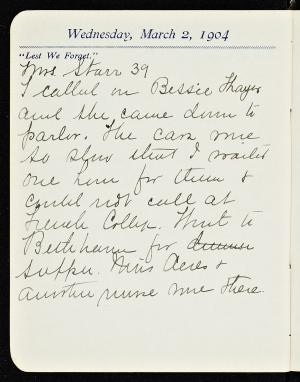 Wednesday, March 2, 1904
"Lest We Forget."
Mrs Starr 39
I called on Bessie Thayer
and she came down to
parlor. The cars were
so slow that I waited
one hour for them &
could not call at
French College. Went to
Bethchaven for dinner
supper. Miss Acres &
another nurse were there.